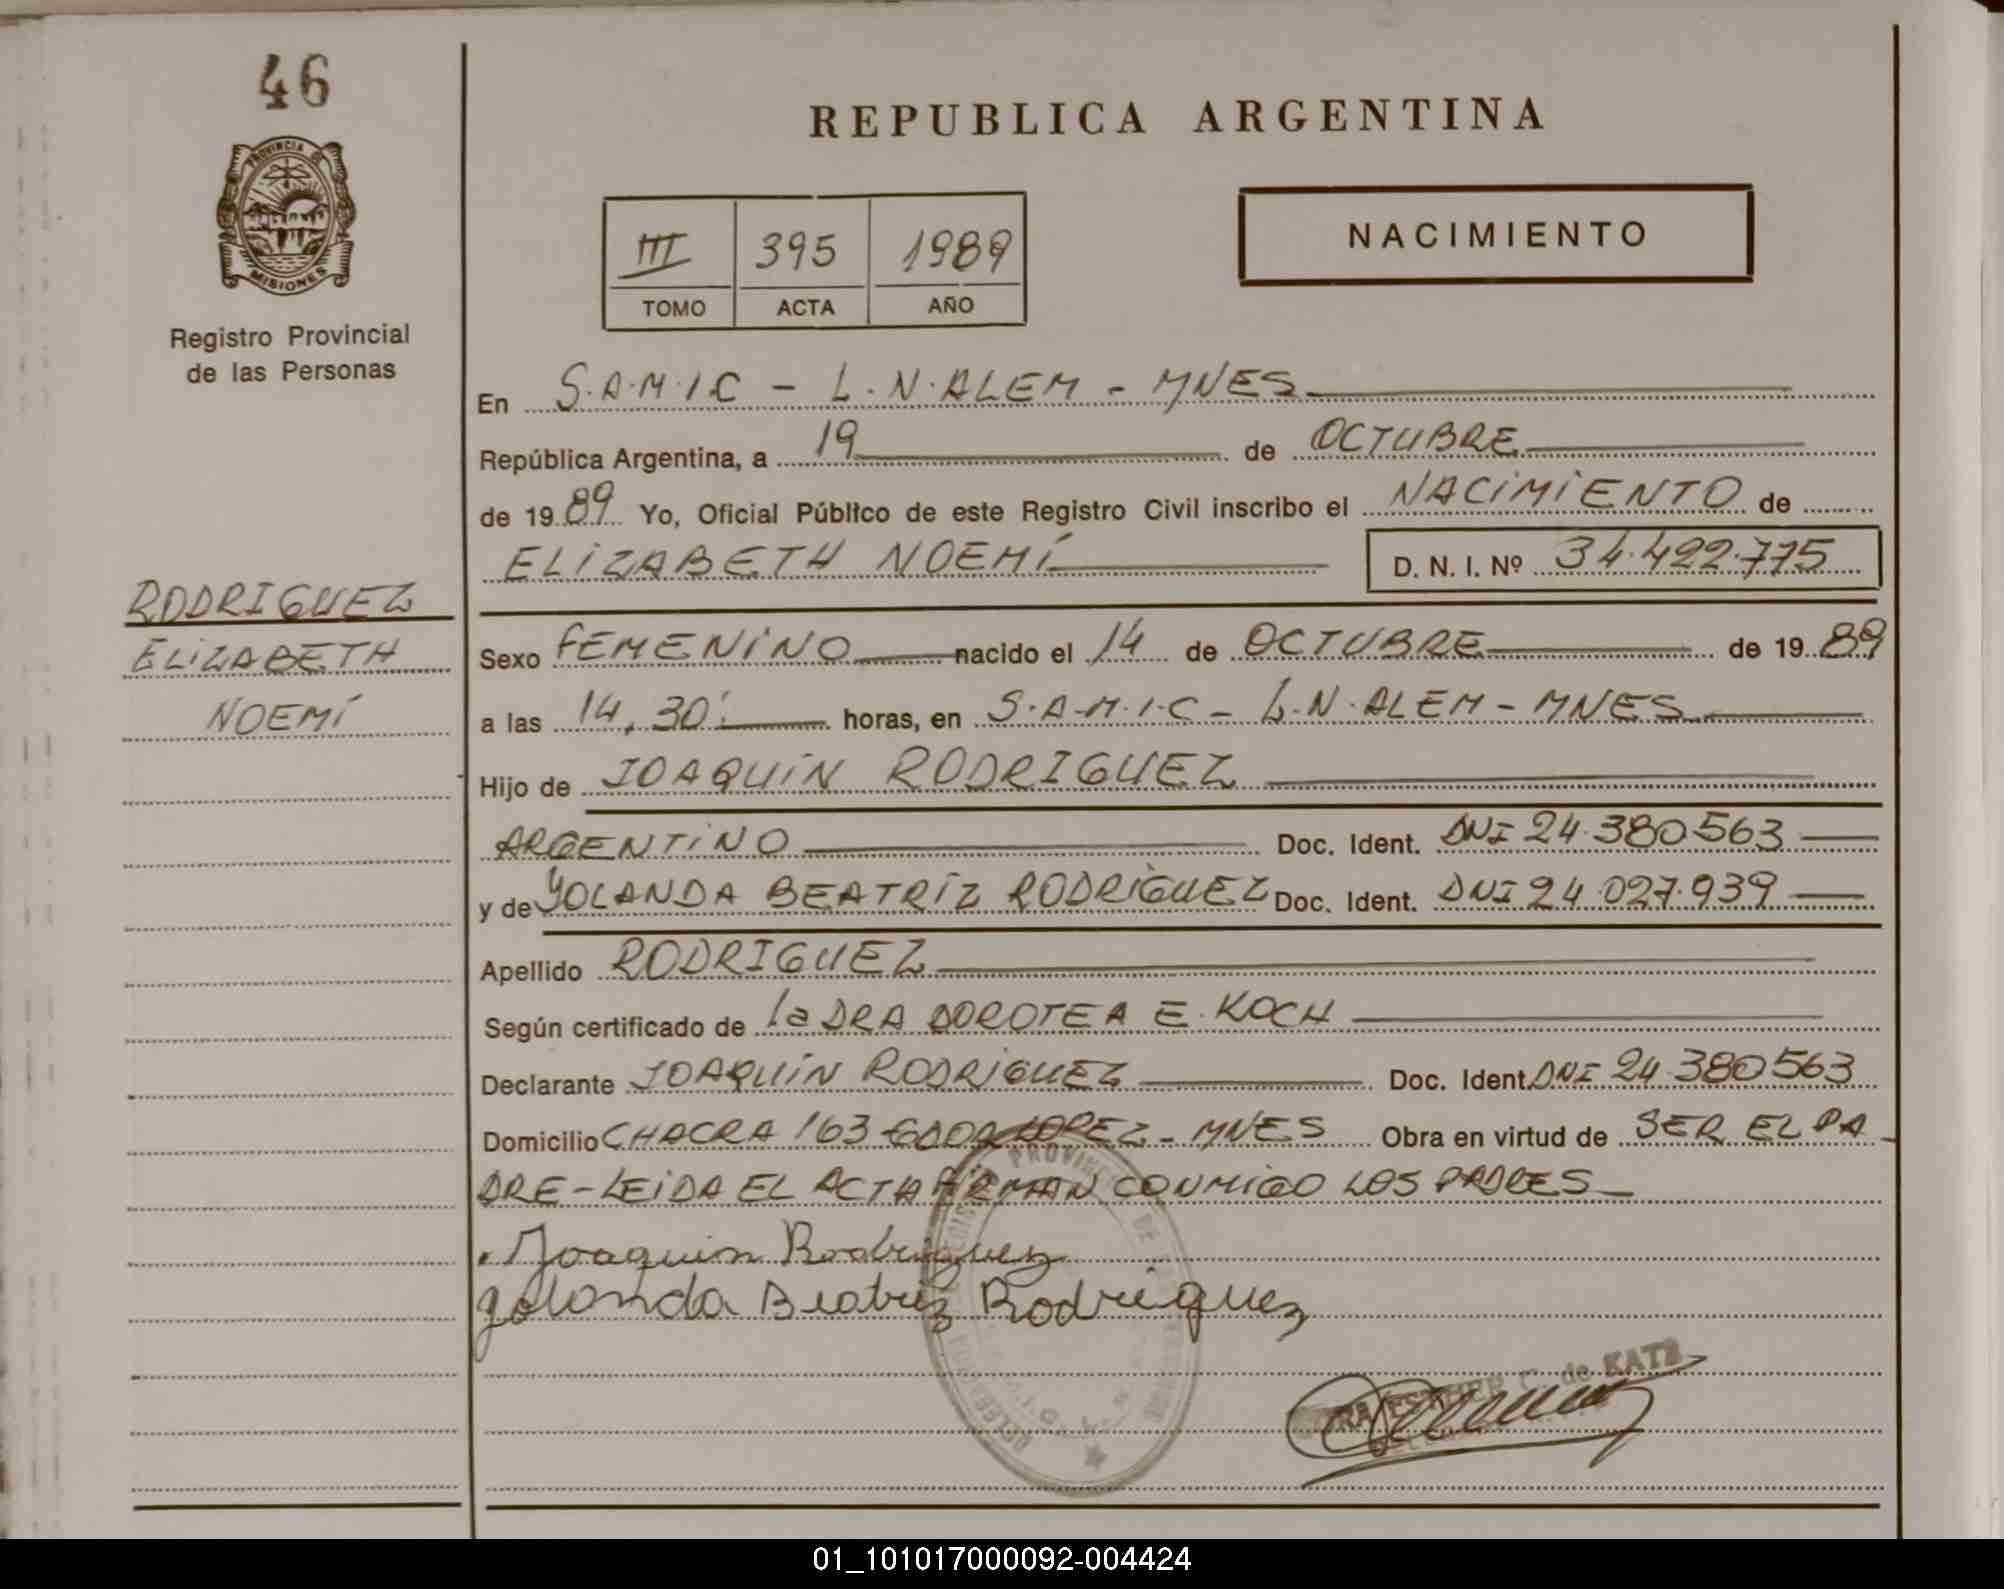 46
PROVINCIA DE
MISIONES
Registro Provincial
de las Personas
RODRIGUEZ
ELIZABETH
NOEMÍ
REPUBLICA ARGENTINA
III 395 1989
TOMO ACTA AÑO
NACIMIENTO
En S.A.M.I.C - L.N.ALEM - MNES
República Argentina, a 19 de OCTUBRE
de 1989 Yo, Oficial Público de este Registro Civil inscribo el NACIMIENTO de
ELIZABETH NOEMÍ D. N. I. Nº 34.422.775
Sexo FEMENINO nacido el 14 de OCTUBRE de 1989
a las 14,30' horas, en S.A.M.I.C - L.N.ALEM - MNES
Hijo de JOAQUIN RODRIGUEZ
ARGENTINO Doc. Ident. DNI 24.380.563
y de YOLANDA BEATRIZ RODRIGUEZ Doc. Ident. DNI 24.027.939
Apellido RODRIGUEZ
Según certificado de la DRA DOROTEA E. KOCH
Declarante JOAQUIN RODRIGUEZ Doc. Ident. DNI 24.380563
Domicilio CHACRA 163 LOPEZ - MNES Obra en virtud de SER EL PA
DRE - LEIDA EL ACTA FIRMAN CONMIGO LOS PADRES
Joaquin Rodriguez
Yolanda Beatriz Rodriguez
ESTHER C. de KATZ
01_101017000092-004424